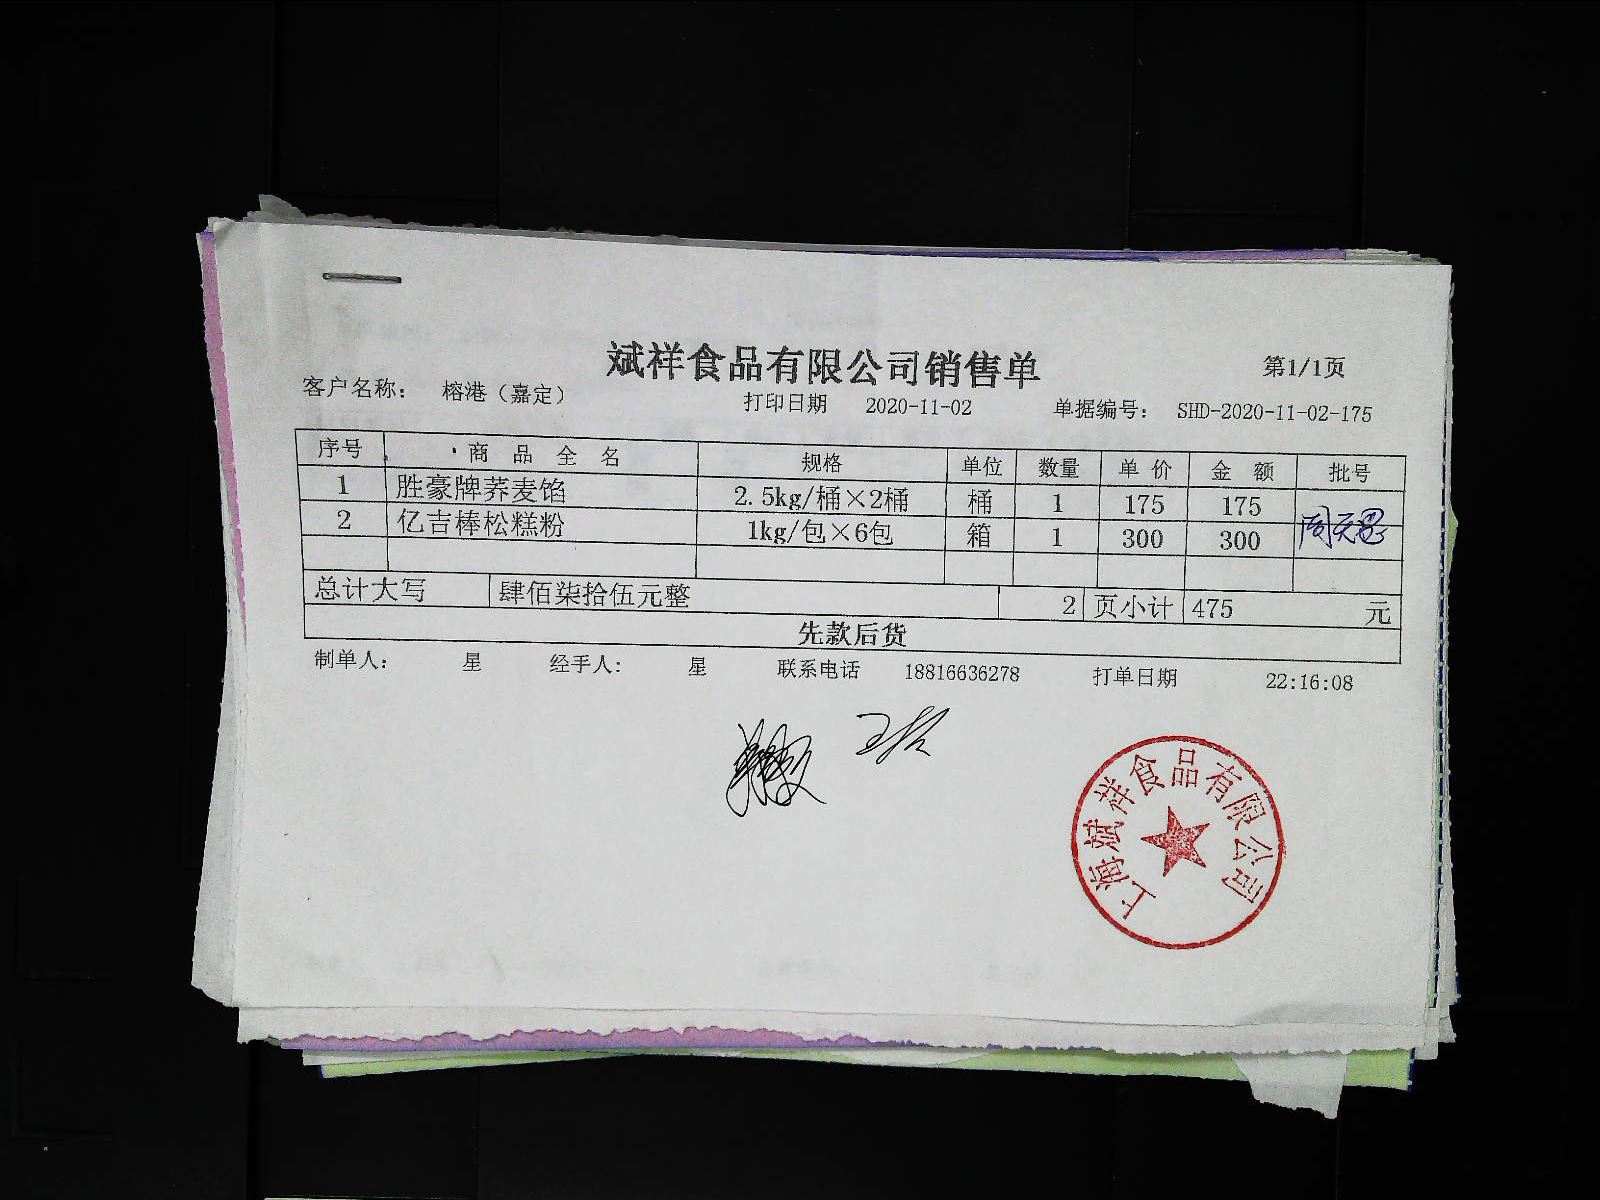 斌祥食品有限公司销售单
第1/1页
客户名称： 榕港（嘉定） 打印日期 2020-11-02 单据编号： SHD-2020-11-02-175
序号 商品全名 规格 单位 数量 单价 金额 批号
1 胜豪牌荞麦馅 2.5kg/桶×2桶 桶 1 175 175
2 亿吉棒松糕粉 1kg/包×6包 箱 1 300 300
总计大写 肆佰柒拾伍元整 2 页小计 475 元
先款后货
制单人： 星 经手人： 星 联系电话 18816636278 打单日期 22:16:08
上海斌祥食品有限公司